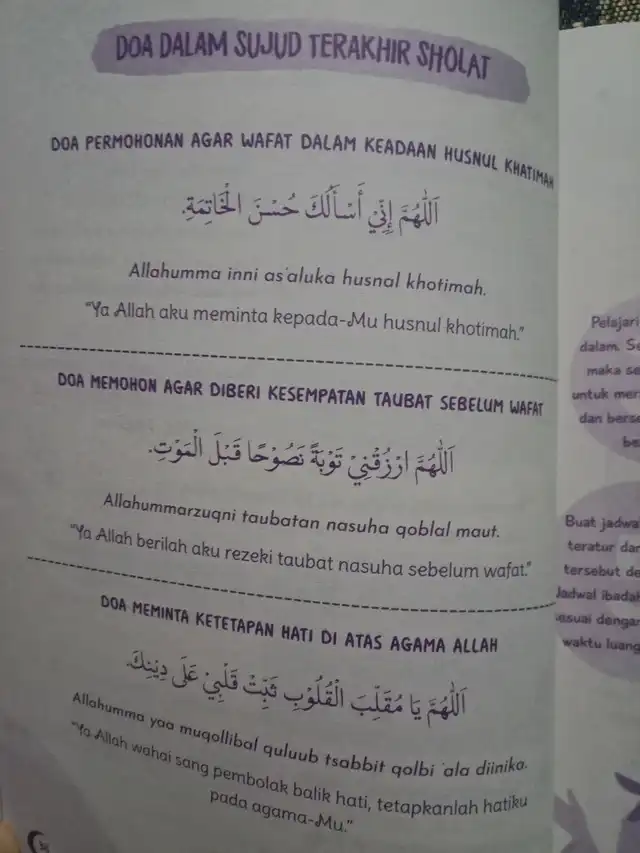 DOA DALAM SUJUD TERAKHIR SHOLAT
DOA PERMOHONAN AGAR WAFAT DALAM KEADAAN HUSNUL KHATIMAH
اَللّٰهُمَّ إِنِّيْ أَسْأَلُكَ حُسْنَ الْخَاتِمَةِ.
Allahumma inni as'aluka husnal khotimah.
"Ya Allah aku meminta kepada-Mu husnul khotimah."
DOA MEMOHON AGAR DIBERI KESEMPATAN TAUBAT SEBELUM WAFAT
اَللّٰهُمَّ ارْزُقْنِيْ تَوْبَةً نَصُوْحًا قَبْلَ الْمَوْتِ.
Allahummarzuqni taubatan nasuha qoblal maut.
"Ya Allah berilah aku rezeki taubat nasuha sebelum wafat."
DOA MEMINTA KETETAPAN HATI DI ATAS AGAMA ALLAH
اَللّٰهُمَّ يَا مُقَلِّبَ الْقُلُوْبِ ثَبِّتْ قَلْبِيْ عَلَى دِيْنِكَ.
Allahumma yaa muqollibal quluub tsabbit qolbi 'ala diinika.
"Ya Allah wahai sang pembolak balik hati, tetapkanlah hatiku
pada agama-Mu."
Pelajari
dalam.
maka
untuk
dan
Buat
teratur
tersebut
waktu luang